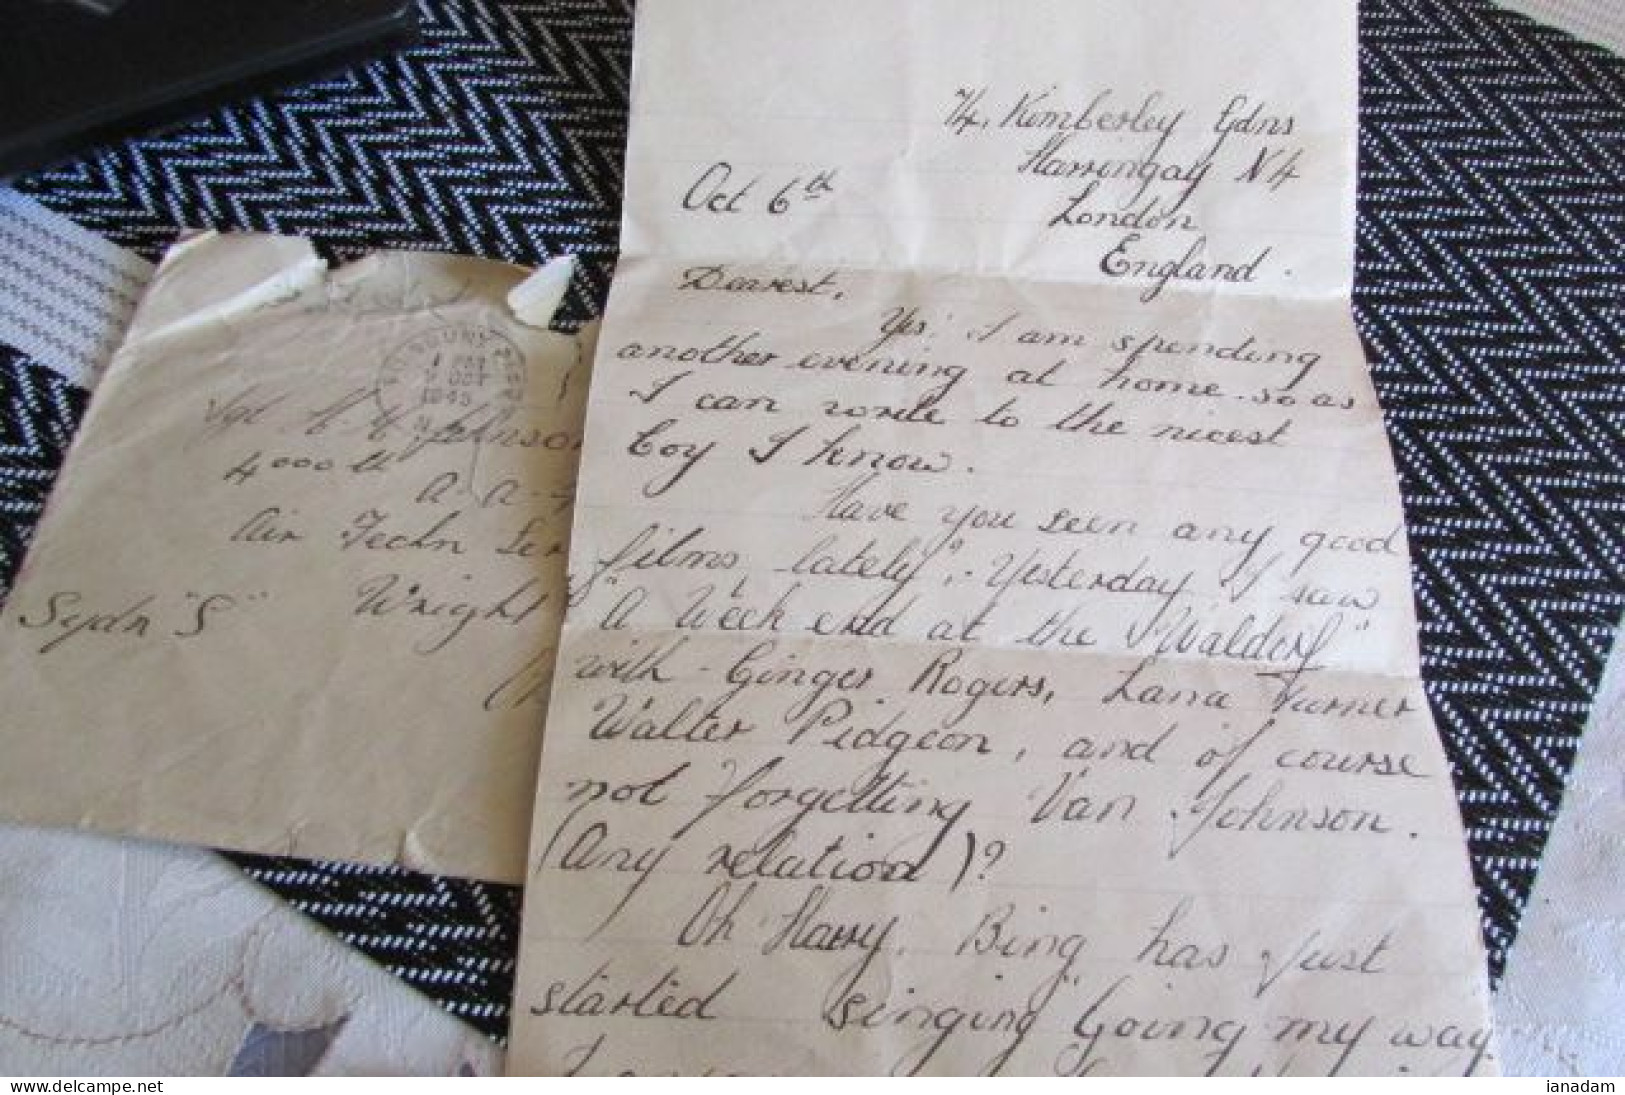 74, Kimberley Gdns
Harringay N4
London
England.
Oct 6th
Dearest,
Yes! I am spending
another evening at home. so as
I can write to the nicest
boy I know.
Have you seen any good
films, lately? Yesterday I saw
"A Week end at the Waldorf"
with Ginger Rogers, Lana Turner
Walter Pidgeon, and of course
not forgetting Van Johnson.
(Any relation)?
Oh Harry. Bing has just
started singing "Going my way
OCT
1945
Sgt H. Johnson
4000th
A-A-F
Air Techn Ser
Wright
Sydn "S"
ianadam
delcampe.net